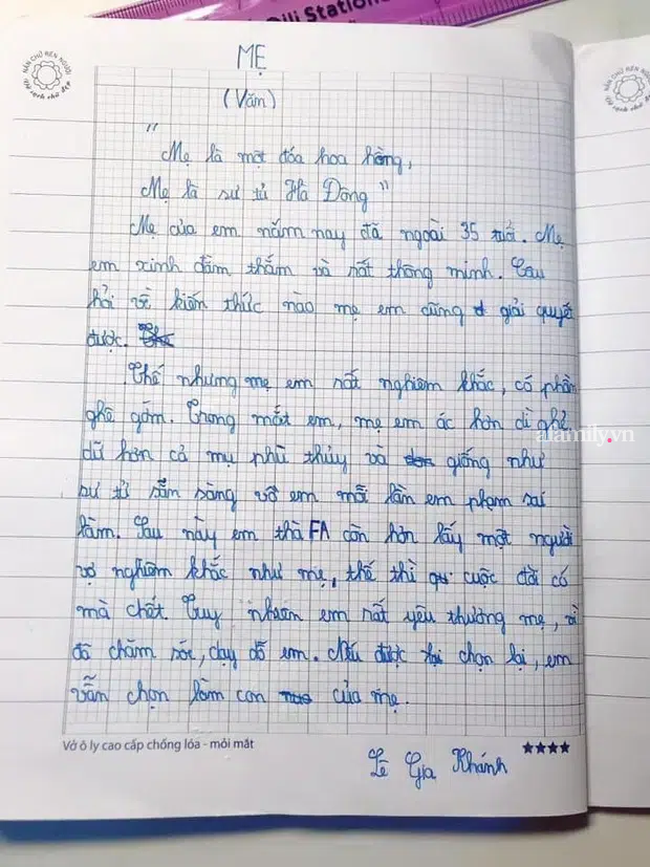 Oili Station
NẮN CHỮ RÈN NGƯỜI
NẮN CHỮ RÈN NGƯỜI
MẸ
(Văn)
"
Mẹ là một đóa hoa hồng,
Mẹ là sư tử Hà Đông"
Mẹ của em năm nay đã ngoài 35 tuổi. Mẹ
em xinh đằm thắm và rất thông minh. Câu
hỏi về kiến thức nào mẹ em cũng giải quyết
được.
Thế nhưng mẹ em rất nghiêm khắc, có phần
ghê gớm. Trong mắt em, mẹ em ác hơn dì ghẻ,
dữ hơn cả mụ phù thủy và giống như
sư tử sẵn sàng vồ em mỗi lần em phạm sai
lầm. Sau này em thà FA còn hơn lấy một người
vợ nghiêm khắc như mẹ, thế thì cuộc đời có
mà chết. Tuy nhiên em rất yêu thương mẹ, vì
đã chăm sóc, dạy dỗ em. Nếu được chọn lại, em
vẫn chọn làm con của mẹ.
Vở ô ly cao cấp chống lóa - mỏi mắt
Lê Gia Khánh
afamily.vn